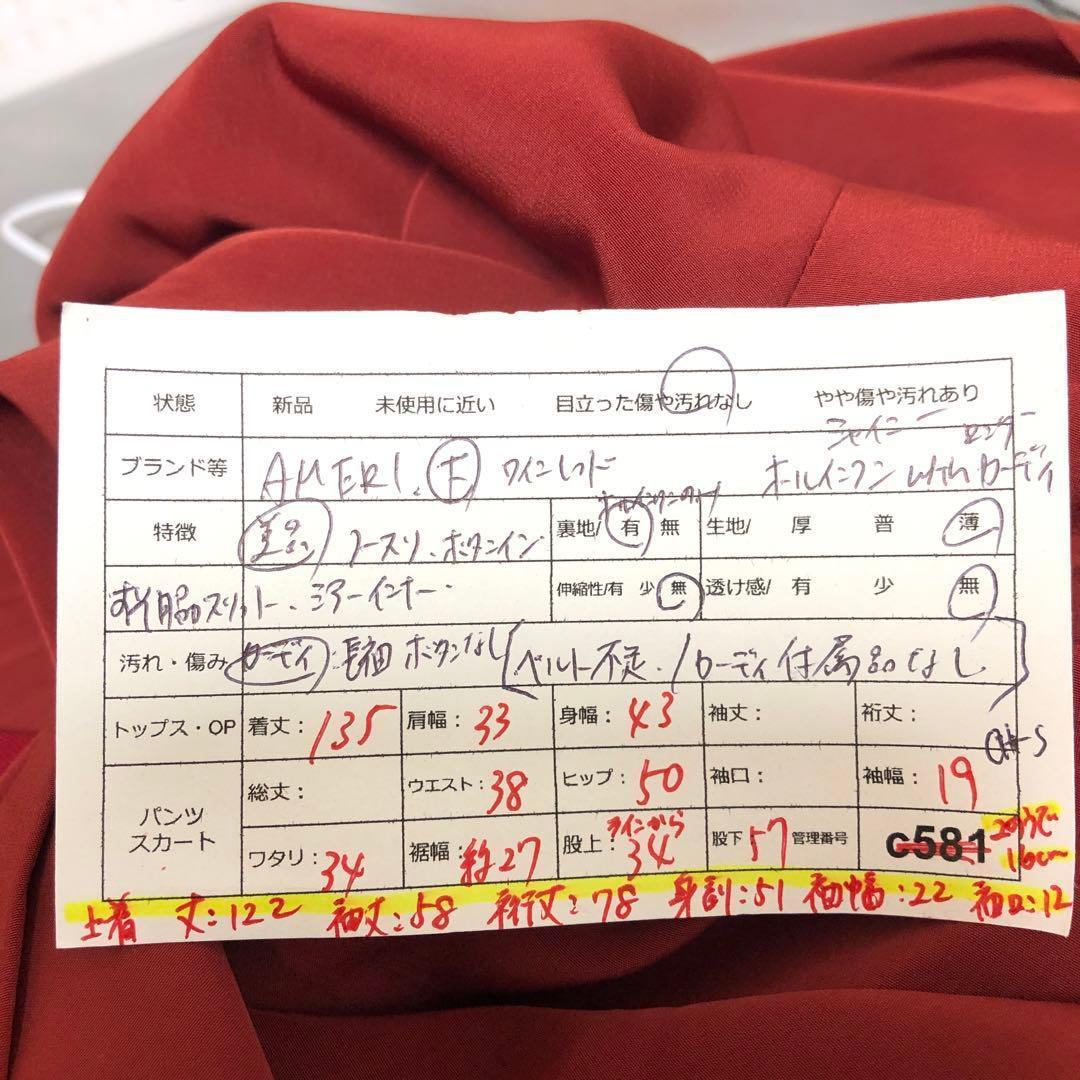 状態 新品 未使用に近い 目立った傷や汚れなし やや傷や汚れあり
シャイニー
ブランド等 AMERI. ワインレッド オールインワン with カーディ
オールインワンのみ
特徴 美品 ノースリ、ボタンイン 裏地/ 有 無 生地/ 厚 普 薄
スリット、シアーインナー 伸縮性/有 少 無 透け感/ 有 少 無
汚れ・傷み カーディ:長袖 ボタンなし ベルト不足、/カーディ付属品なし
トップス・OP 着丈:135 肩幅:33 身幅:43 袖丈: 裄丈:
パンツ スカート 総丈: ウエスト:38 ヒップ:50 袖口: 袖幅:19
ワタリ:34 裾幅:約27 股上:ラインから34 股下:57 管理番号 c581
上着 丈:122 袖丈:58 裄丈:78 身割:51 袖幅:22 袖口:12